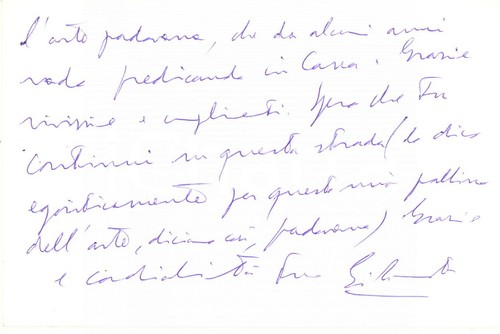 l'arte padovana, che da alcuni anni
vado predicando in Cassa. Grazie
vivissime e complimenti. Spero che Tu
continui su questa strada (lo dico
egoisticamente per questo mio pallino
dell'arte, diciamo così, padovana) Grazie
e cordialità Tuo